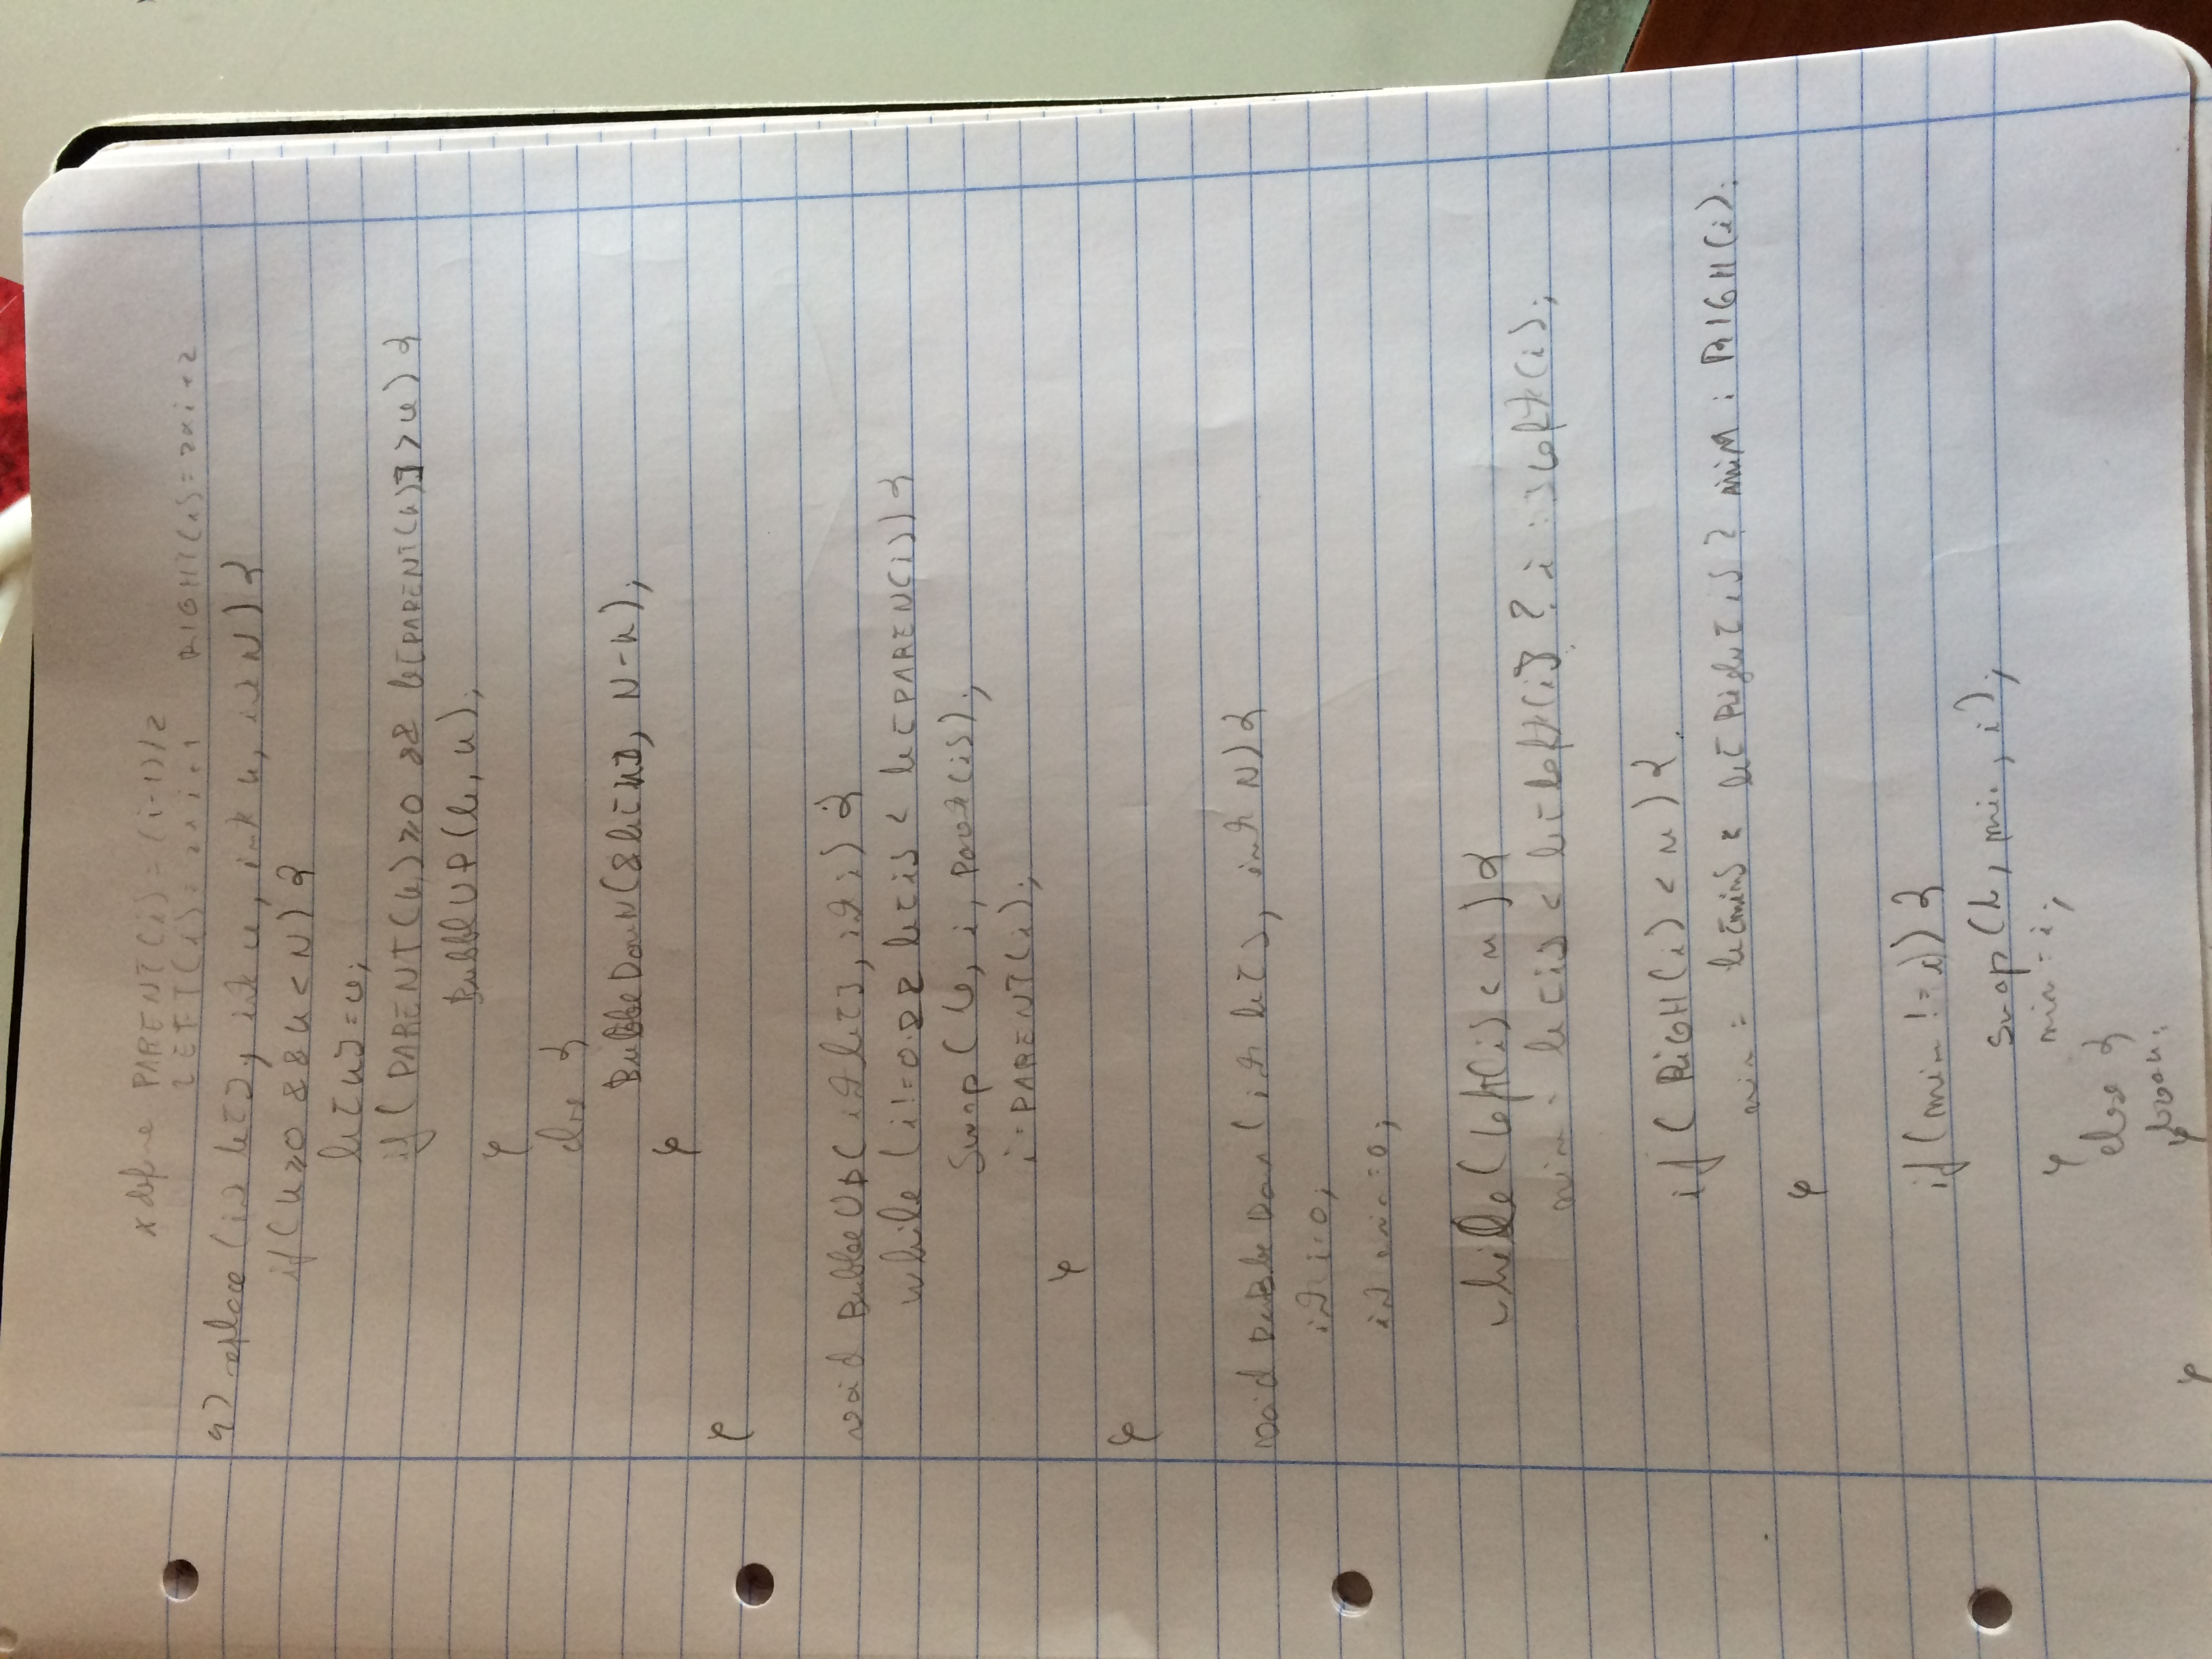 #define PARENT(i) = (i-1)/2
LEFT(i) = 2*i+1 RIGHT(i) = 2*i+2
replace (int h[], int v, int k, int N) {
if (k>=0 && k < N) {
h[k] = v;
if (PARENT(k) >=0 && h[PARENT(k)] > v) {
BubblUP(h, k);
}
else {
BubbleDowN(&h[k], N-k);
}
}
void BubbleUp( int h[], int i) {
while (i!=0 && h[i] < h[PAREN(i)) {
Swap (h, i, Parent(i));
i = PARENT(i);
}
}
void BubbleDown (int h[], int N) {
int i=0;
int min=0;
while (left(i) < n) {
min = h[i] < h[left(i)] ? i : left(i);
if ( RIGH(i) < n) {
min = h[min] < h[Right[i] ? min : RIGH(i);
}
if (min != i) {
swap (h, min, i);
} min = i;
else {
break;
} }